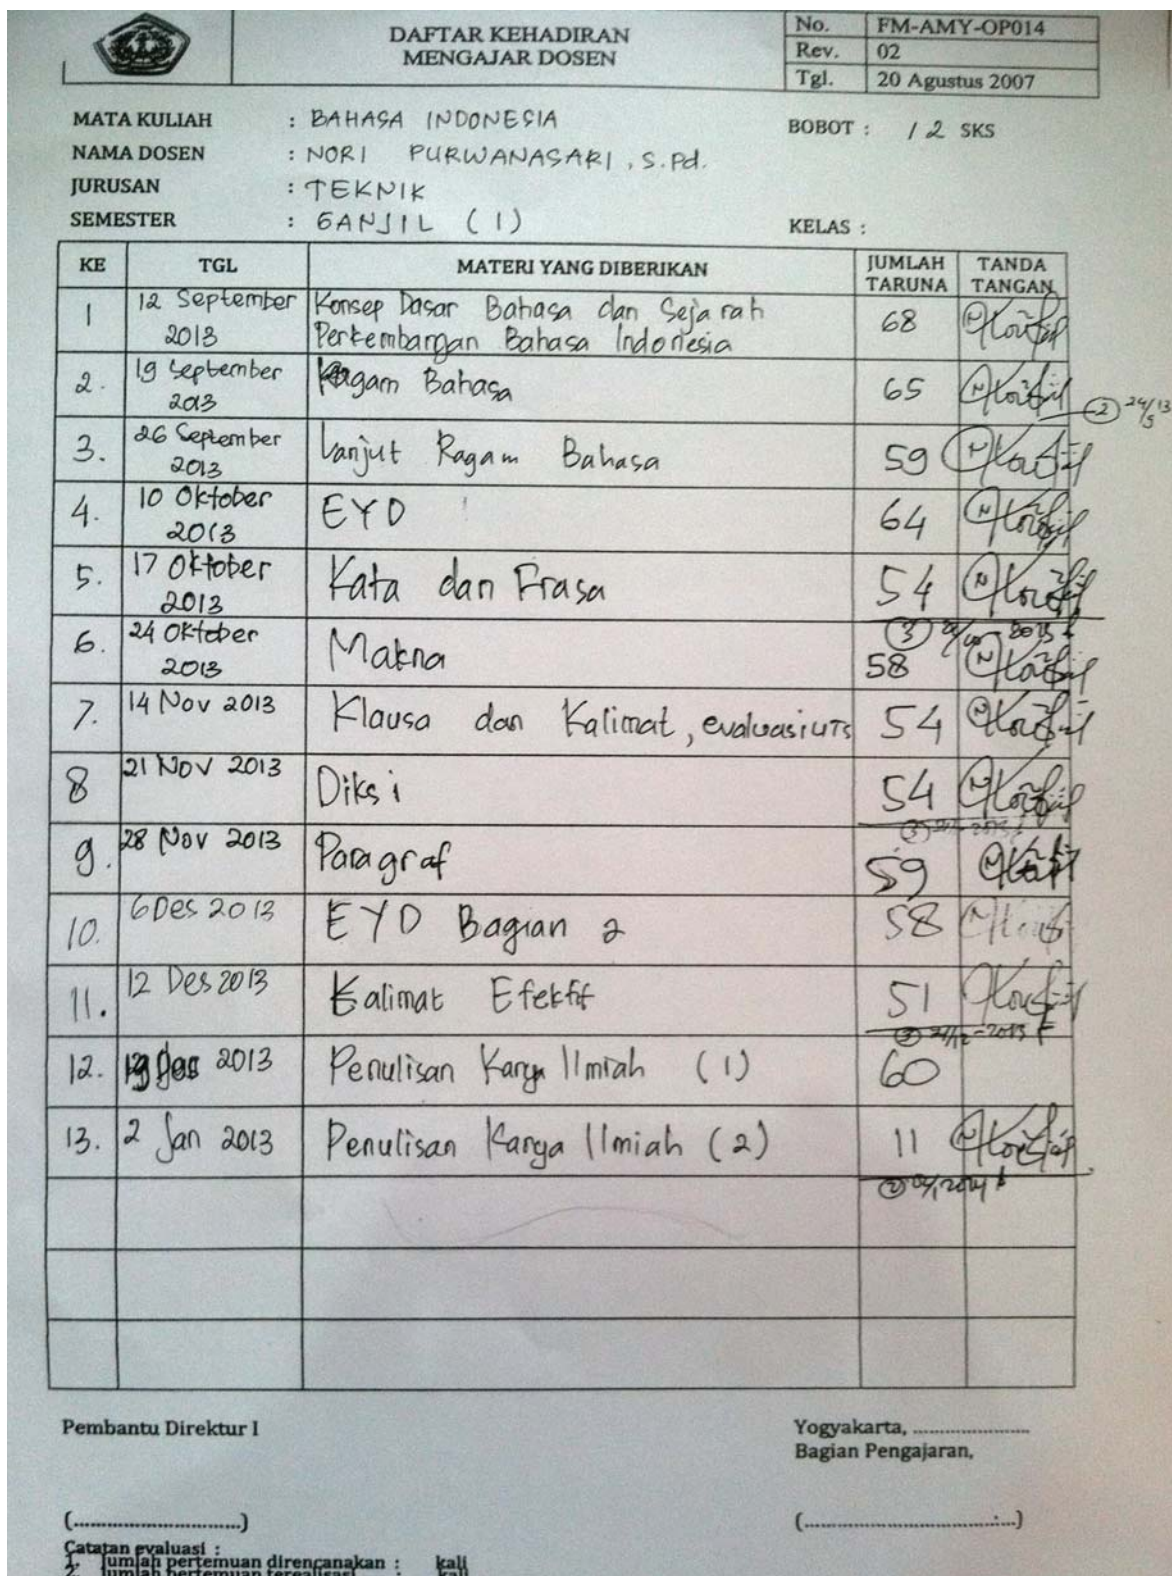 DAFTAR KEHADIRAN
MENGAJAR DOSEN
No. FM-AMY-OP014
Rev. 02
Tgl. 20 Agustus 2007
MATA KULIAH : BAHASA INDONESIA
BOBOT : / 2 SKS
NAMA DOSEN : NORI PURWANASARI, S.Pd.
JURUSAN : TEKNIK
SEMESTER : GANJIL (1)
KELAS :
KE TGL MATERI YANG DIBERIKAN JUMLAH TARUNA TANDA TANGAN
1 12 September 2013 Konsep Dasar Bahasa dan Sejarah Perkembangan Bahasa Indonesia 68
2. 19 September 2013 Ragam Bahasa 65
3. 26 September 2013 Lanjut Ragam Bahasa 59
4. 10 Oktober 2013 EYD 64
5. 17 Oktober 2013 Kata dan Frasa 54
6. 24 Oktober 2013 Makna 58
7. 14 Nov 2013 Klausa dan Kalimat, evaluasi UTS 54
8 21 Nov 2013 Diksi 54
9. 28 Nov 2013 Paragraf 59
10. 6 Des 2013 EYD Bagian 2 58
11. 12 Des 2013 Kalimat Efektif 51
12. 19 Des 2013 Penulisan Karya Ilmiah (1) 60
13. 2 Jan 2013 Penulisan Karya Ilmiah (2) 11
Pembantu Direktur I
Yogyakarta, ........................
Bagian Pengajaran,
(..............................)
(..............................)
Catatan evaluasi :
1. Jumlah pertemuan direncanakan : kali
2. Jumlah pertemuan terealisasi : kali